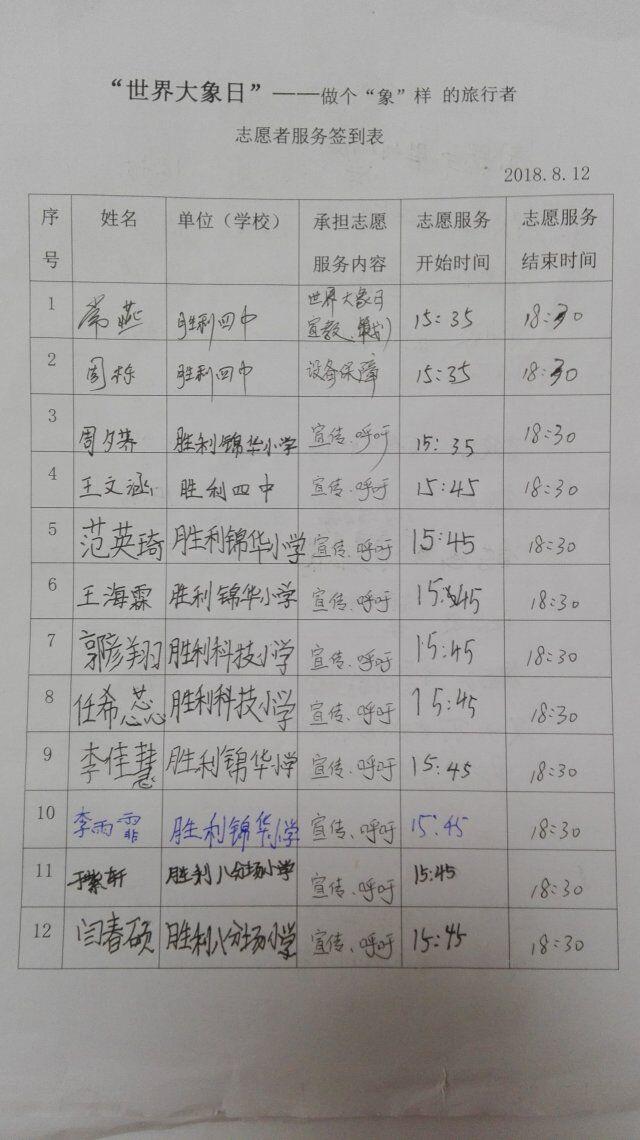 “世界大象日”——做个“象”样 的旅行者
志愿者服务签到表
2018.8.12
序号 姓名 单位（学校） 承担志愿服务内容 志愿服务开始时间 志愿服务结束时间
1 常燕 胜利四中 世界大象日宣教、策划 15:35 18:30
2 周栎 胜利四中 设备保障 15:35 18:30
3 周夕荞 胜利锦华小学 宣传、呼吁 15:35 18:30
4 王文涵 胜利四中 宣传、呼吁 15:45 18:30
5 范英琦 胜利锦华小学 宣传、呼吁 15:45 18:30
6 王海霖 胜利锦华小学 宣传、呼吁 15:45 18:30
7 郭彦翔 胜利科技小学 宣传、呼吁 15:45 18:30
8 任希蕊 胜利科技小学 宣传、呼吁 15:45 18:30
9 李佳慧 胜利锦华小学 宣传、呼吁 15:45 18:30
10 李雨霏 胜利锦华小学 宣传、呼吁 15:45 18:30
11 于紫轩 胜利八分场小学 宣传、呼吁 15:45 18:30
12 闫春硕 胜利八分场小学 宣传、呼吁 15:45 18:30